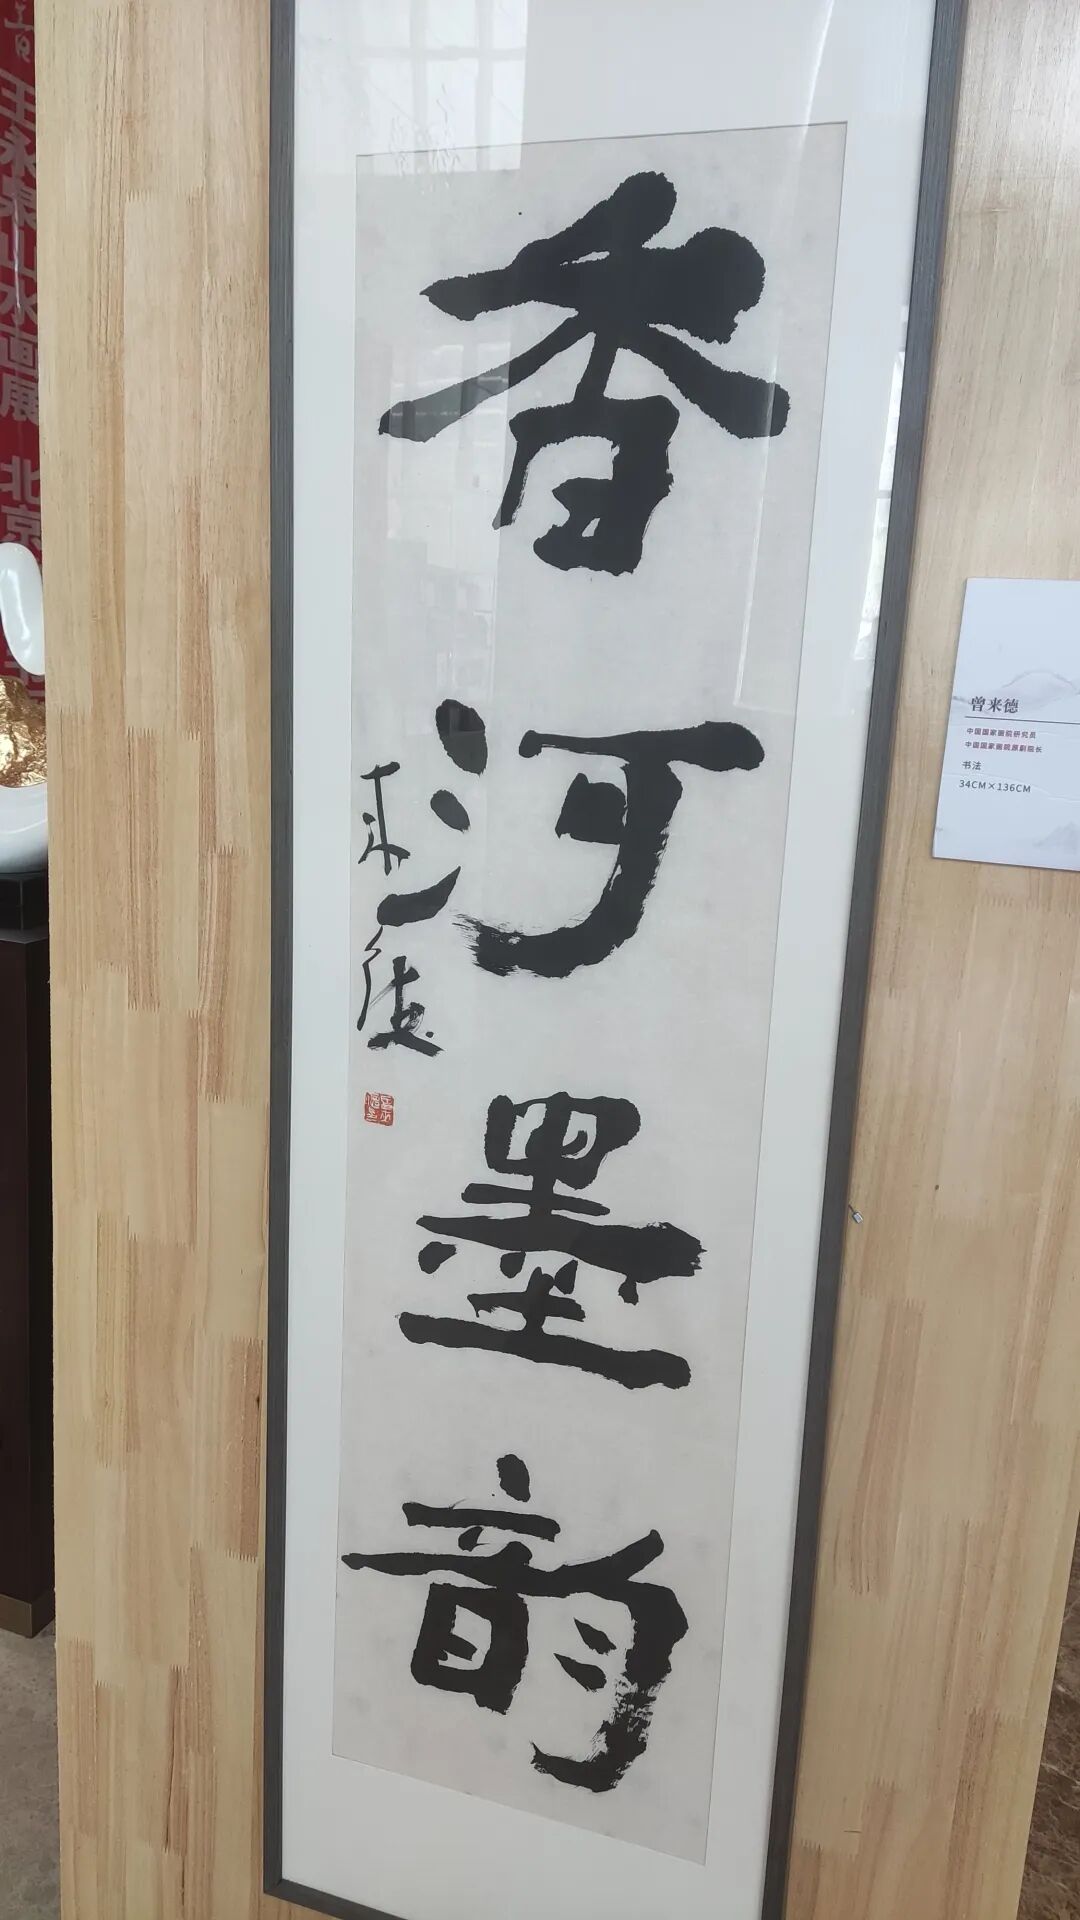 香河墨韵
来德
曾来德
中国国家画院研究员
中国国家画院原副院长
书法
34CM×136CM
王永泉山水画展 北京